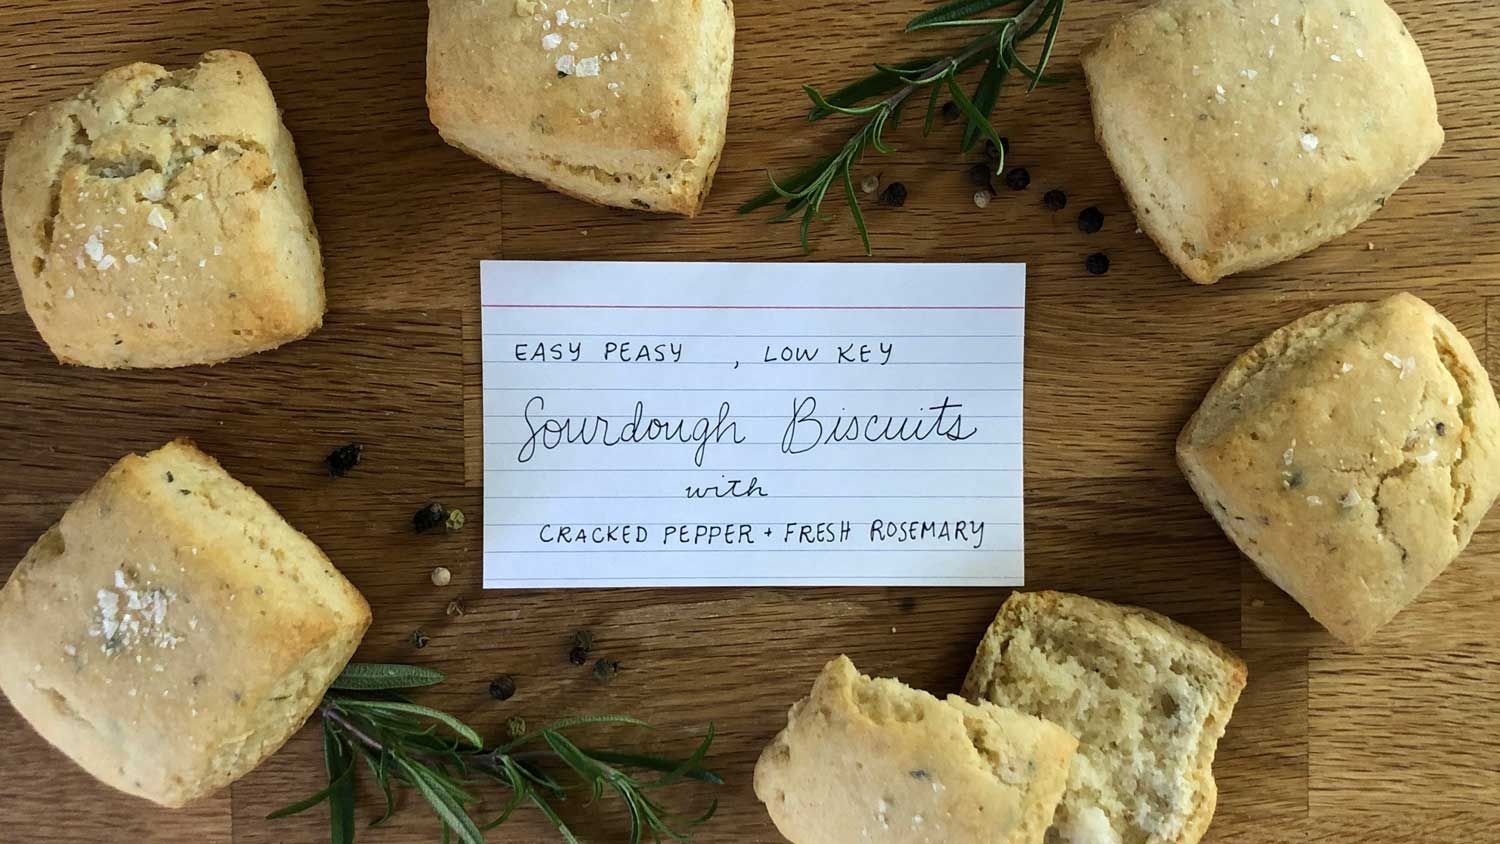 EASY PEASY , LOW KEY
Sourdough Biscuits
with
CRACKED PEPPER + FRESH ROSEMARY